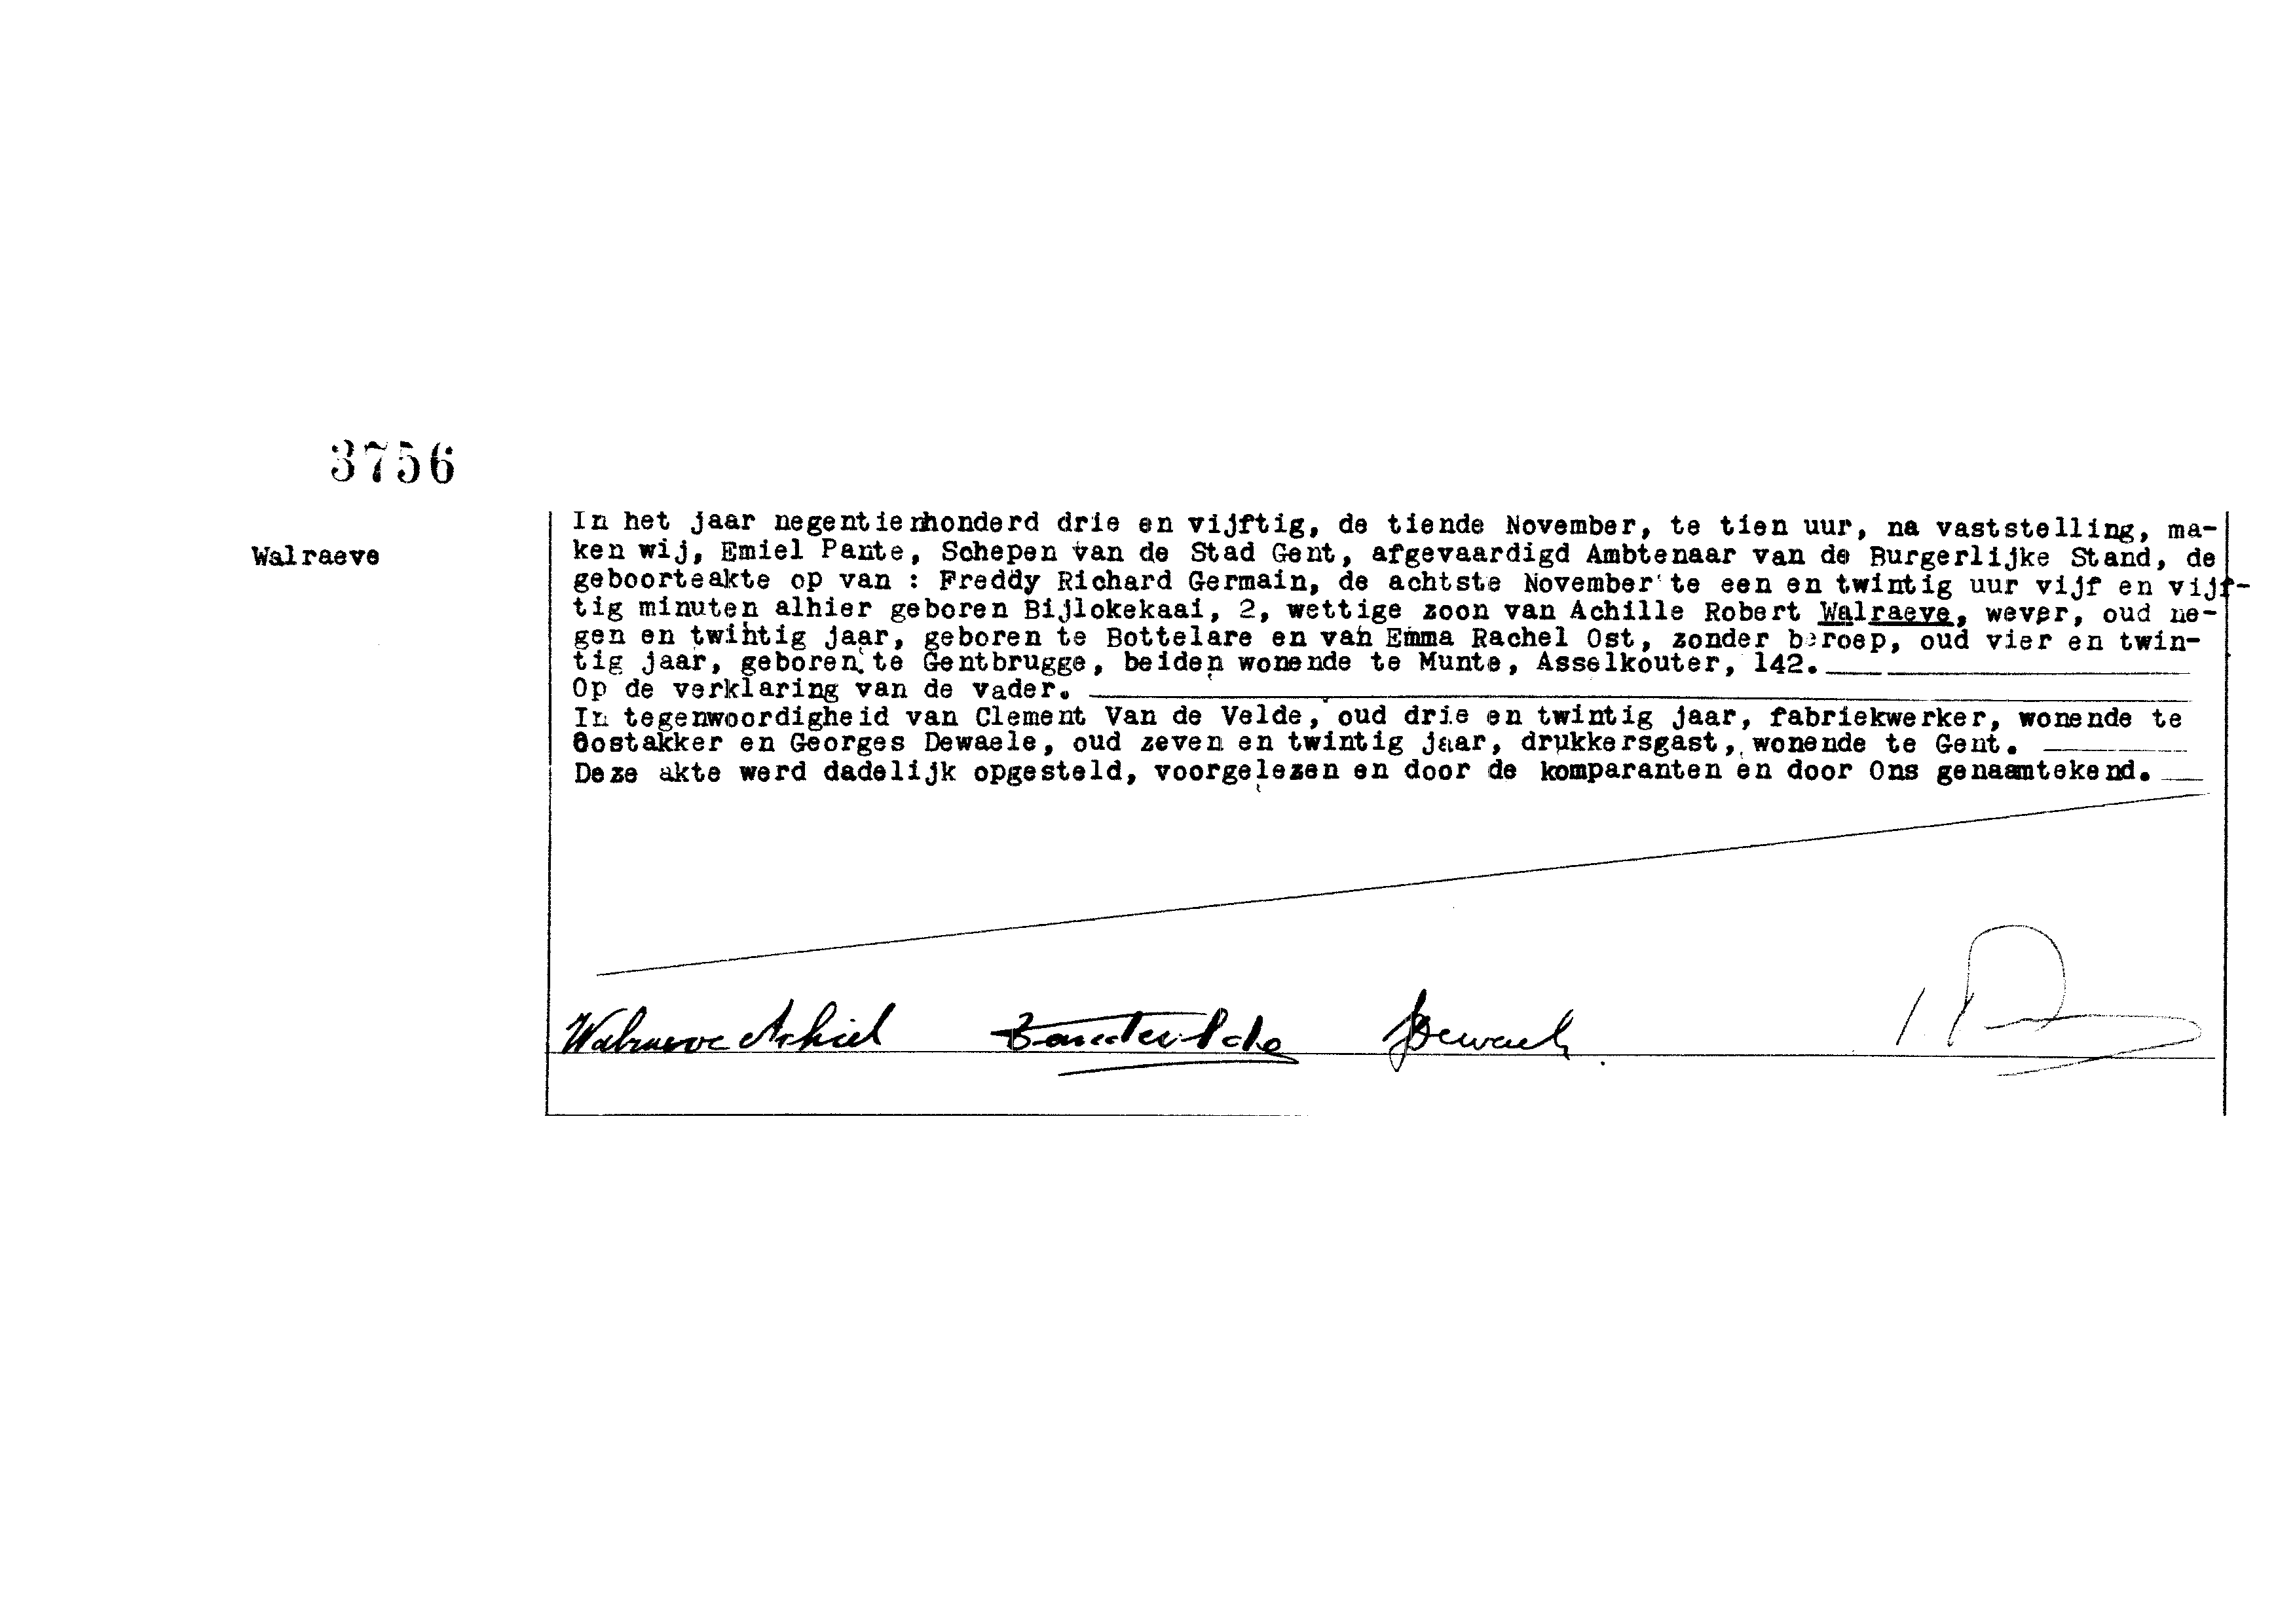 3756
Walraeve
In het jaar negentienhonderd drie en vijftig, de tiende November, te tien uur, na vaststelling, ma-
ken wij, Emiel Pante, Schepen van de Stad Gent, afgevaardigd Ambtenaar van de Burgerlijke Stand, de
geboorteakte op van : Freddy Richard Germain, de achtste November te een en twintig uur vijf en vijf-
tig minuten alhier geboren Bijlokekaai, 2, wettige zoon van Achille Robert Walraeve, wever, oud ne-
gen en twintig jaar, geboren te Bottelare en van Emma Rachel Ost, zonder beroep, oud vier en twin-
tig jaar, geboren te Gentbrugge, beiden wonende te Munte, Asselkouter, 142.
Op de verklaring van de vader.
In tegenwoordigheid van Clement Van de Velde, oud drie en twintig jaar, fabriekwerker, wonende te
Oostakker en Georges Dewaele, oud zeven en twintig jaar, drukkersgast, wonende te Gent.
Deze akte werd dadelijk opgesteld, voorgelezen en door de komparanten en door Ons genaamtekend.
Walraeve Achiel